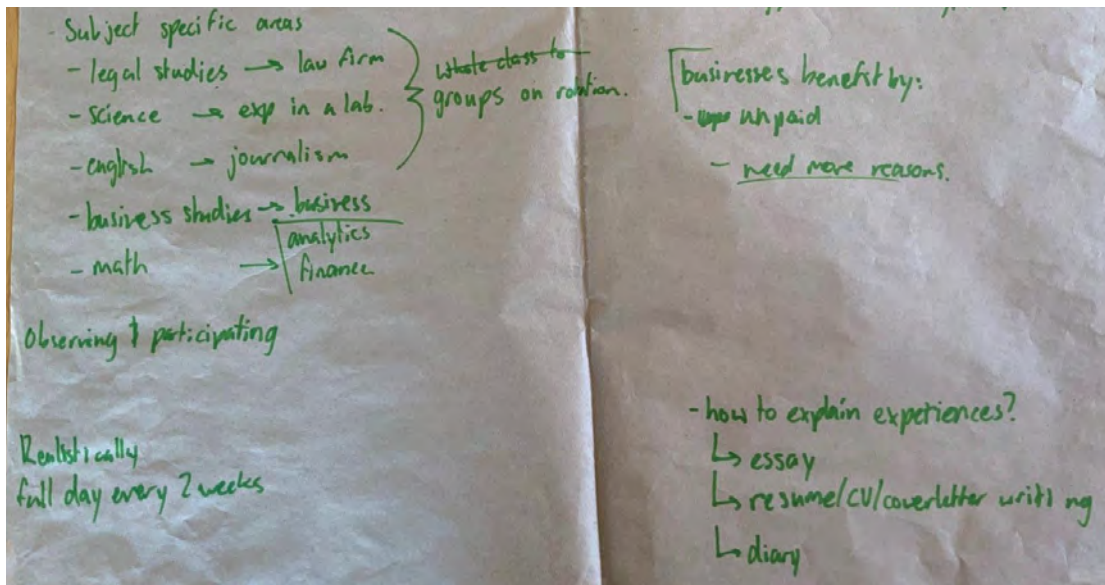 - Subject specific areas
- legal studies → law firm
- science → exp in a lab.
- english → journalism
- business studies → business
- math → analytics
finance
whole class to
groups on rotation.
Observing & participating
Realistically
full day every 2 weeks
businesses benefit by:
- unpaid
- need more reasons.
- how to explain experiences?
↳ essay
↳ resume/CU/coverletter writing
↳ diary